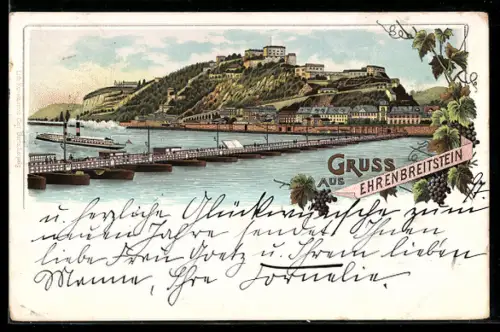 GRUSS
AUS
EHRENBREITSTEIN
u. herzliche Glückwünsche zum
neuen Jahre sendet Ihnen
liebe Frau Goetz u. Ihrem lieben
Manne, Ihre Cornelie.